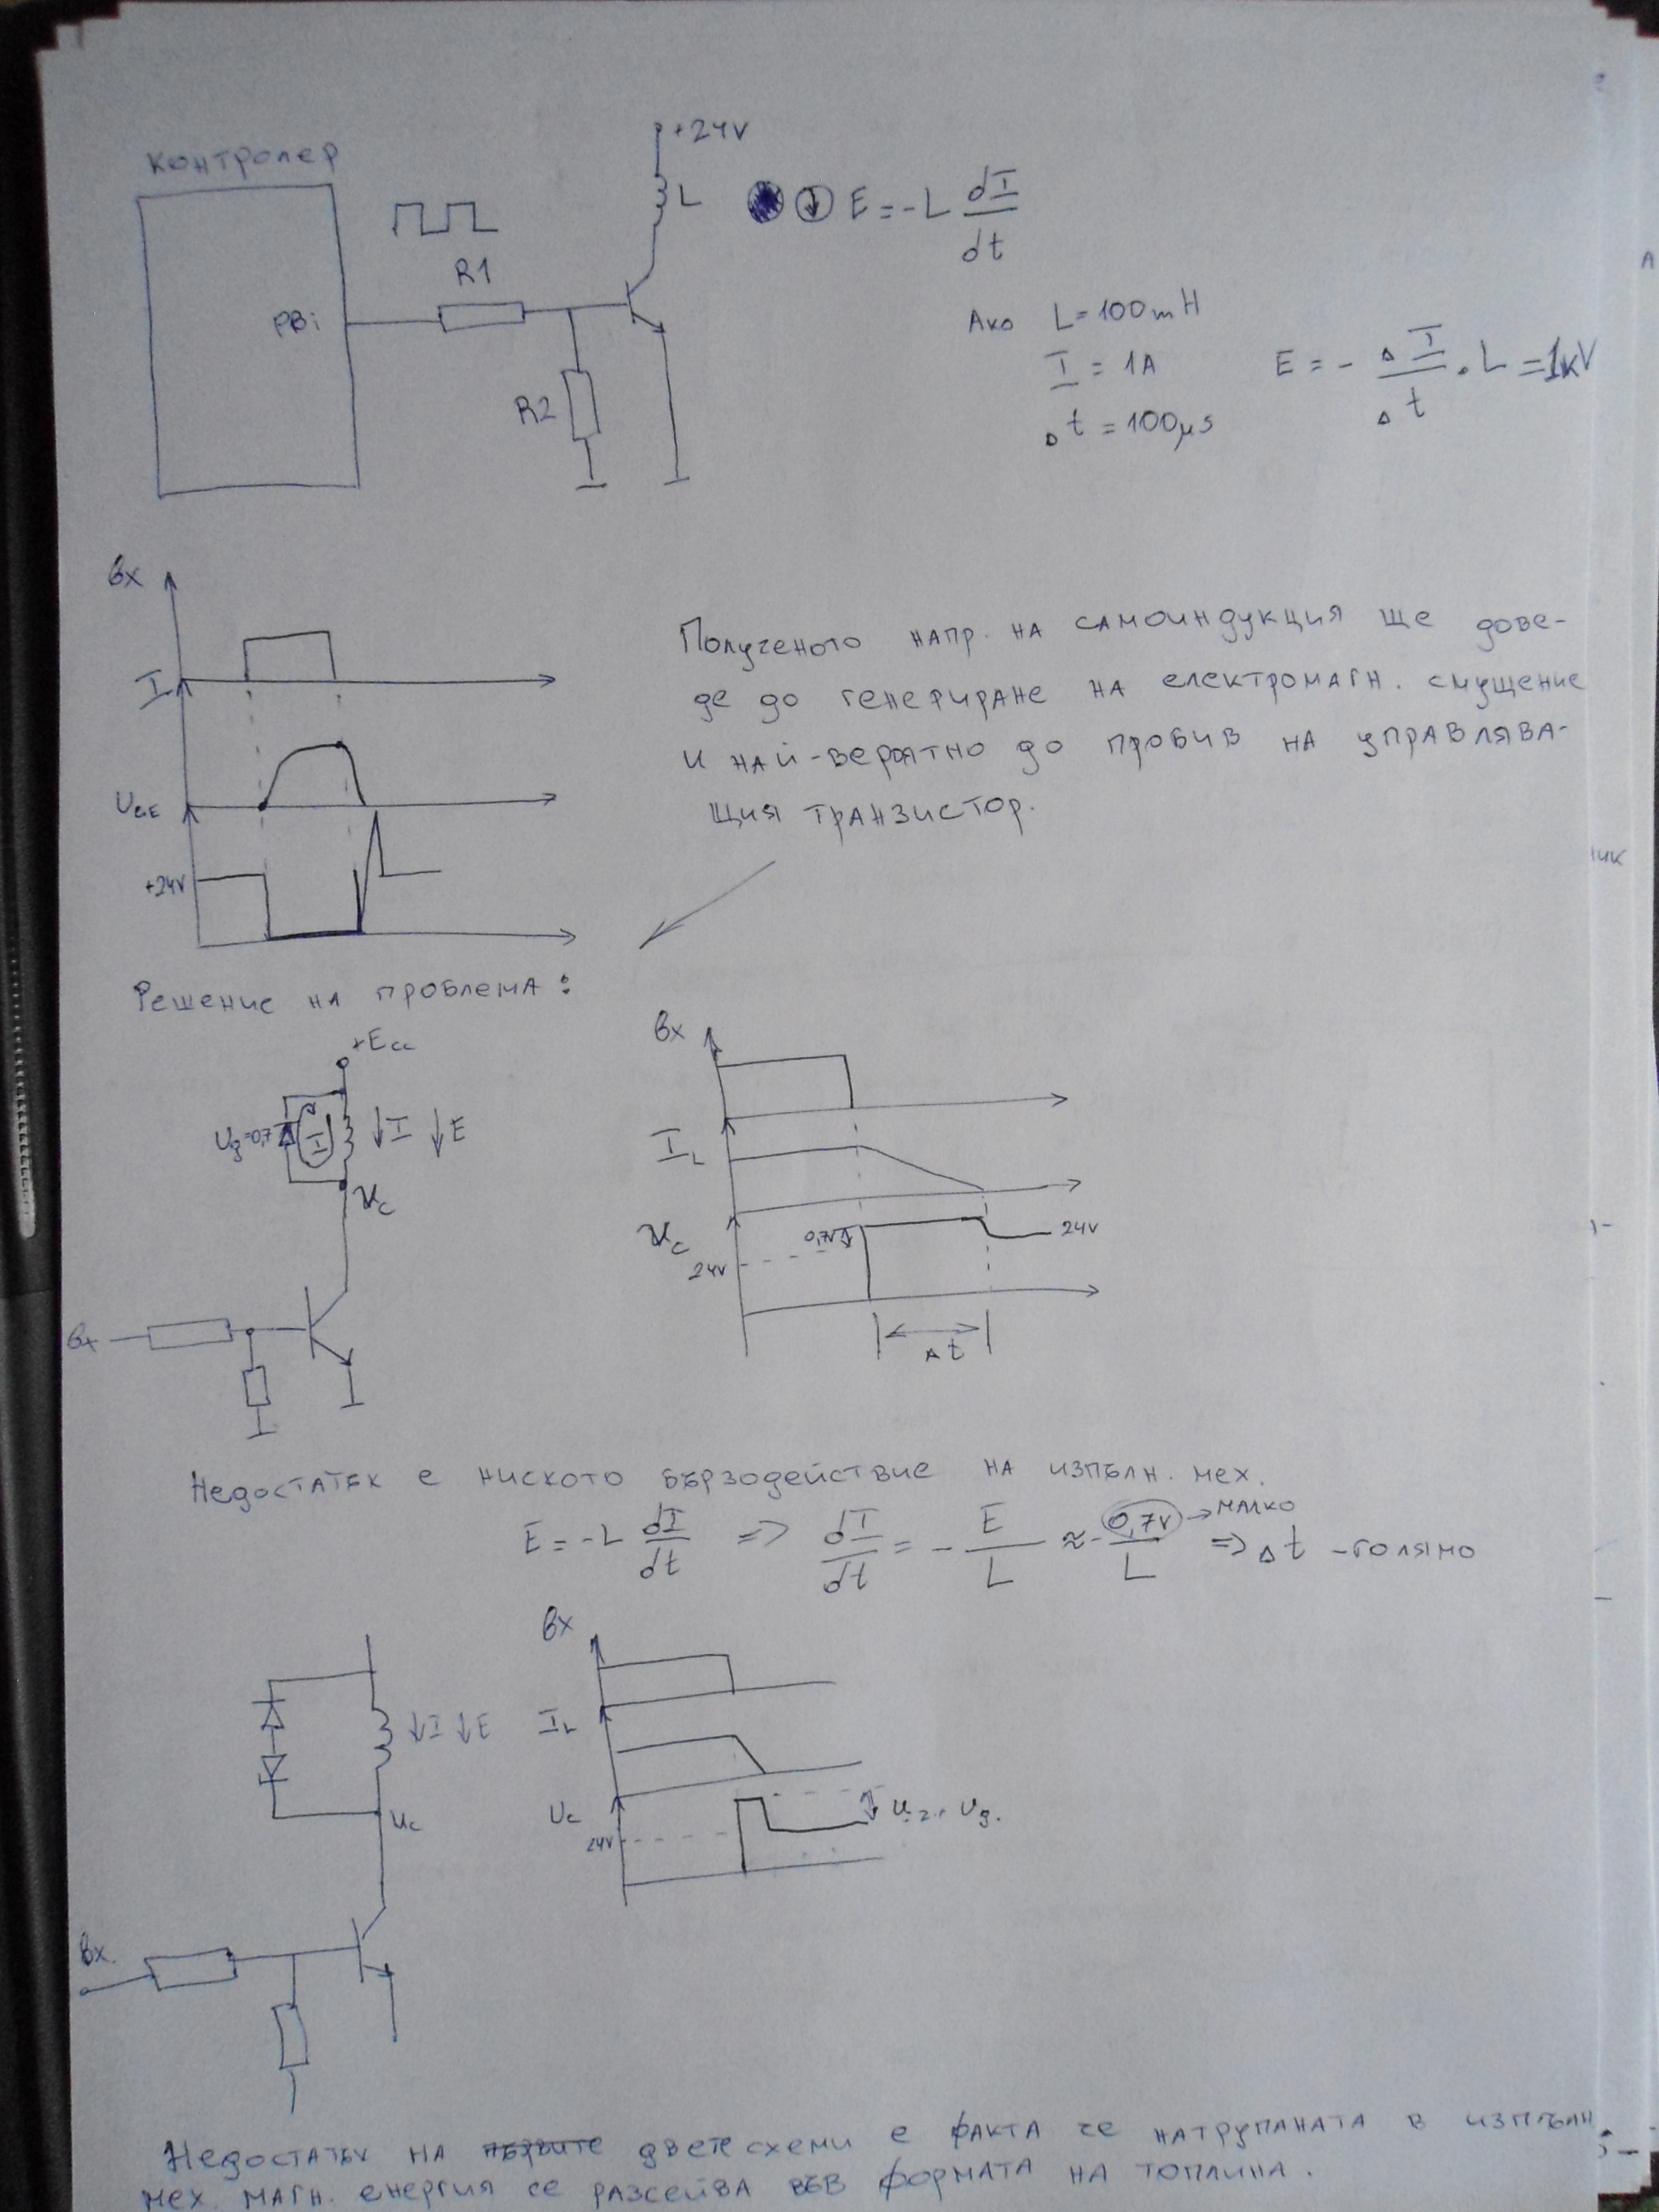 контролер
+24V
L
E = -L dI/dt
R1
PBi
R2
Ако L = 100mH
I = 1A
Δt = 100μs
E = - ΔI/Δt . L = 1kV
Вх
I
UCE
+24V
Полученото напр. на самоиндукция ще дове-
де до генериране на електромагн. смущение
и най-вероятно до пробив на управлява-
щия транзистор.
Решение на проблема:
+Ecc
Ug=0,7
I
I
E
Uc
Вх
Вх
IL
Uc
0,7V
24V
24V
Δt
Недостатък е ниското бързодействие на изпълн. мех.
E = -L dI/dt => dI/dt = - E/L ≈ - 0,7V/L => Δt - голямо
малко
I
E
Uc
Вх.
Вх
IL
Uc
24V
Uz + Ug.
Недостатък на първите двете схеми е факта че натрупаната в изпълн
мех. магн. енергия се разсейва във формата на топлина.